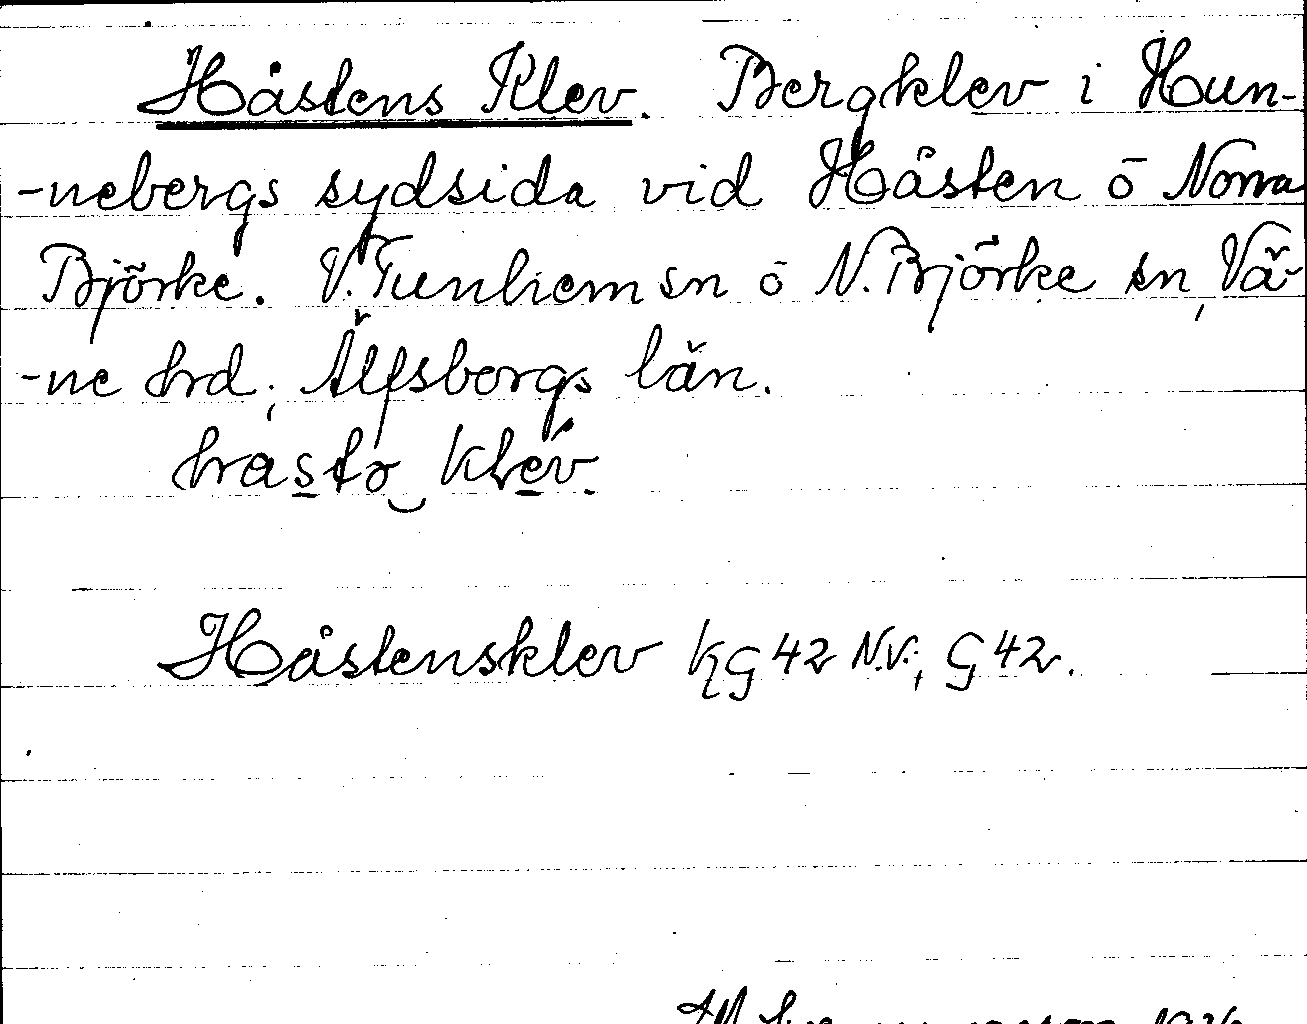 Håstens Klev. Bergklev i Hun-
-nebergs sydsida vid Håsten ö Norra
Björke. V. Tunhem sn ö N. Björke sn, Vä-
-ne hrd; Älfsborgs län.
Håstensklev KG 42 N.V.; G 42.